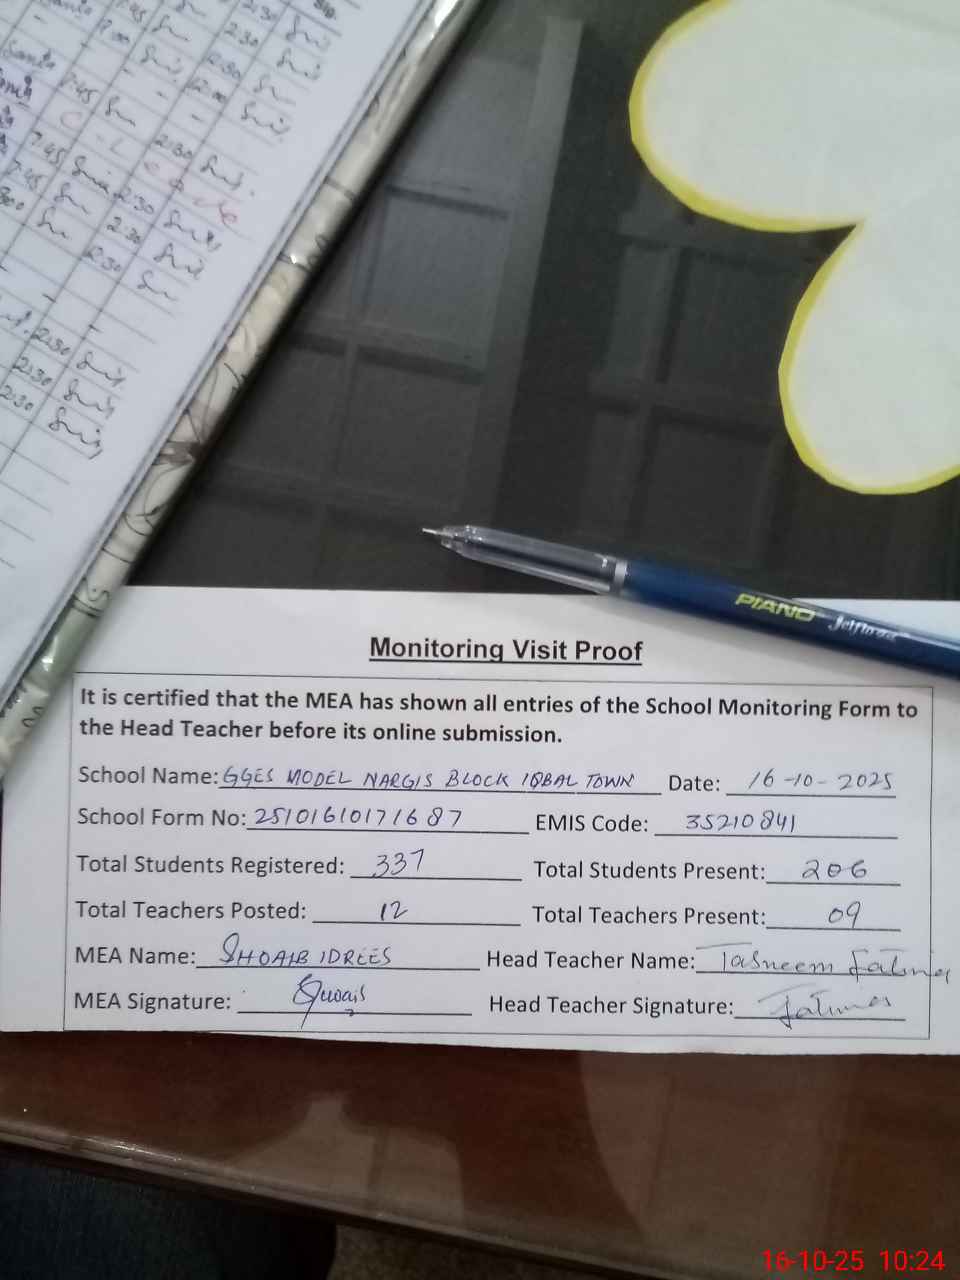 Sig.
7:45 2:30
8:00 2:30
12:30
12:00
7:45
C - L
2:30
7:45 2:30
7:45 2:30
8:00 2:30
2:30
2:30
2:30
PIANO
Monitoring Visit Proof
It is certified that the MEA has shown all entries of the School Monitoring Form to
the Head Teacher before its online submission.
School Name: GGES MODEL NARGIS BLOCK IQBAL TOWN Date: 16-10-2025
School Form No: 25101610171687 EMIS Code: 35210841
Total Students Registered: 337 Total Students Present: 206
Total Teachers Posted: 12 Total Teachers Present: 09
MEA Name: SHOAIB IDREES Head Teacher Name: Tasneem Fatima
MEA Signature: Head Teacher Signature: Fatima
16-10-25 10:24